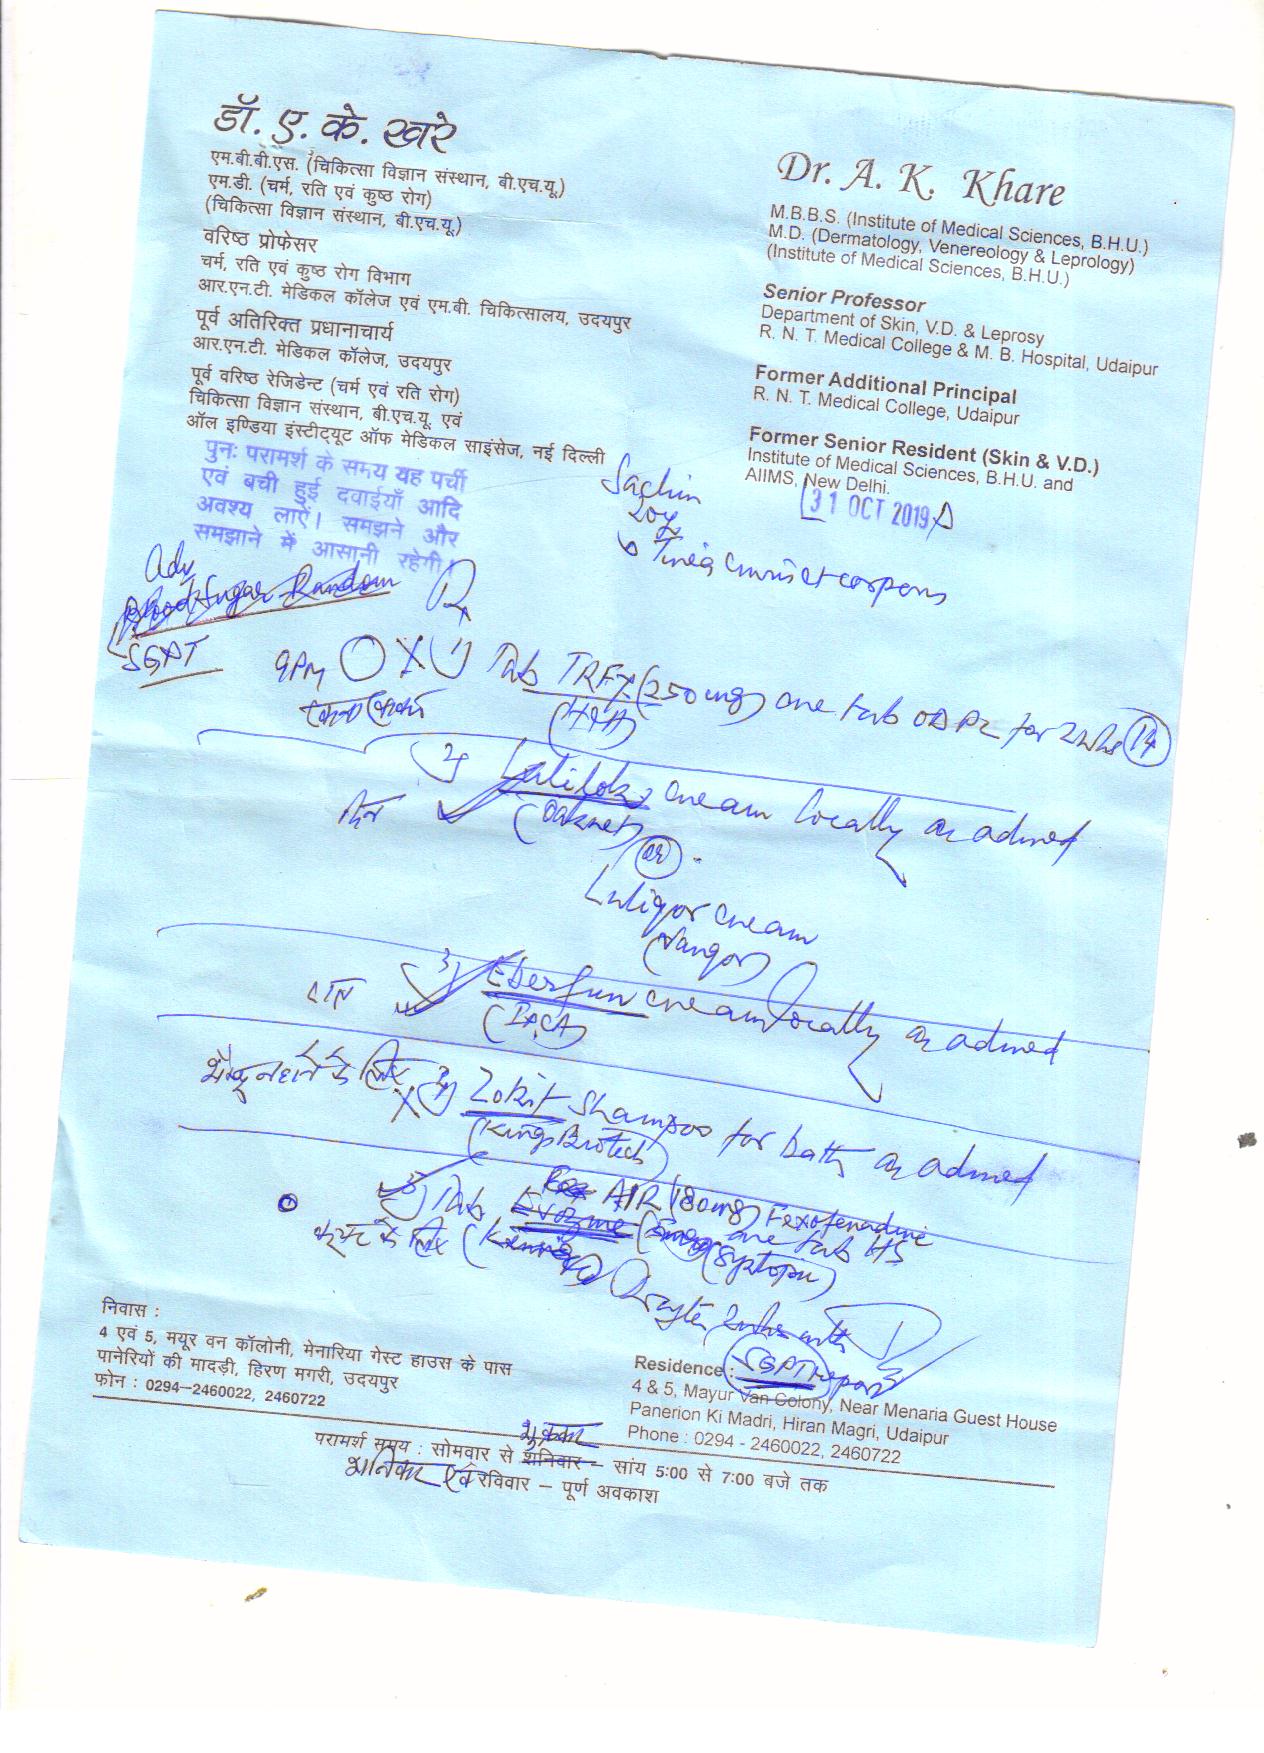 डॉ. ए. के. खरे
एम.बी.बी.एस. (चिकित्सा विज्ञान संस्थान, बी.एच.यू.)
एम.डी. (चर्म, रति एवं कुष्ठ रोग)
(चिकित्सा विज्ञान संस्थान, बी.एच.यू.)
वरिष्ठ प्रोफेसर
चर्म, रति एवं कुष्ठ रोग विभाग
आर.एन.टी. मेडिकल कॉलेज एवं एम.बी. चिकित्सालय, उदयपुर
पूर्व अतिरिक्त प्रधानाचार्य
आर.एन.टी. मेडिकल कॉलेज, उदयपुर
पूर्व वरिष्ठ रेजिडेन्ट (चर्म एवं रति रोग)
चिकित्सा विज्ञान संस्थान, बी.एच.यू. एवं
ऑल इण्डिया इंस्टीट्यूट ऑफ मेडिकल साइंसेज, नई दिल्ली
पुनः परामर्श के समय यह पर्ची
एवं बची हुई दवाईयाँ आदि
अवश्य लाऐं। समझने और
समझाने में आसानी रहेगी।
Dr. A. K. Khare
M.B.B.S. (Institute of Medical Sciences, B.H.U.)
M.D. (Dermatology, Venereology & Leprology)
(Institute of Medical Sciences, B.H.U.)
Senior Professor
Department of Skin, V.D. & Leprosy
R. N. T. Medical College & M. B. Hospital, Udaipur
Former Additional Principal
R. N. T. Medical College, Udaipur
Former Senior Resident (Skin & V.D.)
Institute of Medical Sciences, B.H.U. and
AIIMS, New Delhi.
31 OCT 2019
Sachin
20y
Tinea cruris et corporis
Adv
Blood Sugar Random
SGPT
Rx
9PM Tab (250mg) one tab OD for 2wks 14
2) cream locally as advised
दिन (Oaknet)
or
cream
3) cream locally as advised
रात
नहाने के लिए Shampoo for bath as advised
(Kings Biotech)
5) Tab AIR (180mg) Fexofenadine
one tab HS
के लिए (Systopic)
2wks with
SGPT report
निवास :
4 एवं 5, मयूर वन कॉलोनी, मेनारिया गेस्ट हाउस के पास
पानेरियों की मादड़ी, हिरण मगरी, उदयपुर
फोन : 0294–2460022, 2460722
Residence :
4 & 5, Mayur Van Colony, Near Menaria Guest House
Panerion Ki Madri, Hiran Magri, Udaipur
Phone : 0294 - 2460022, 2460722
शुक्रवार
परामर्श समय : सोमवार से शनिवार – सांय 5:00 से 7:00 बजे तक
शनिवार एवं रविवार – पूर्ण अवकाश